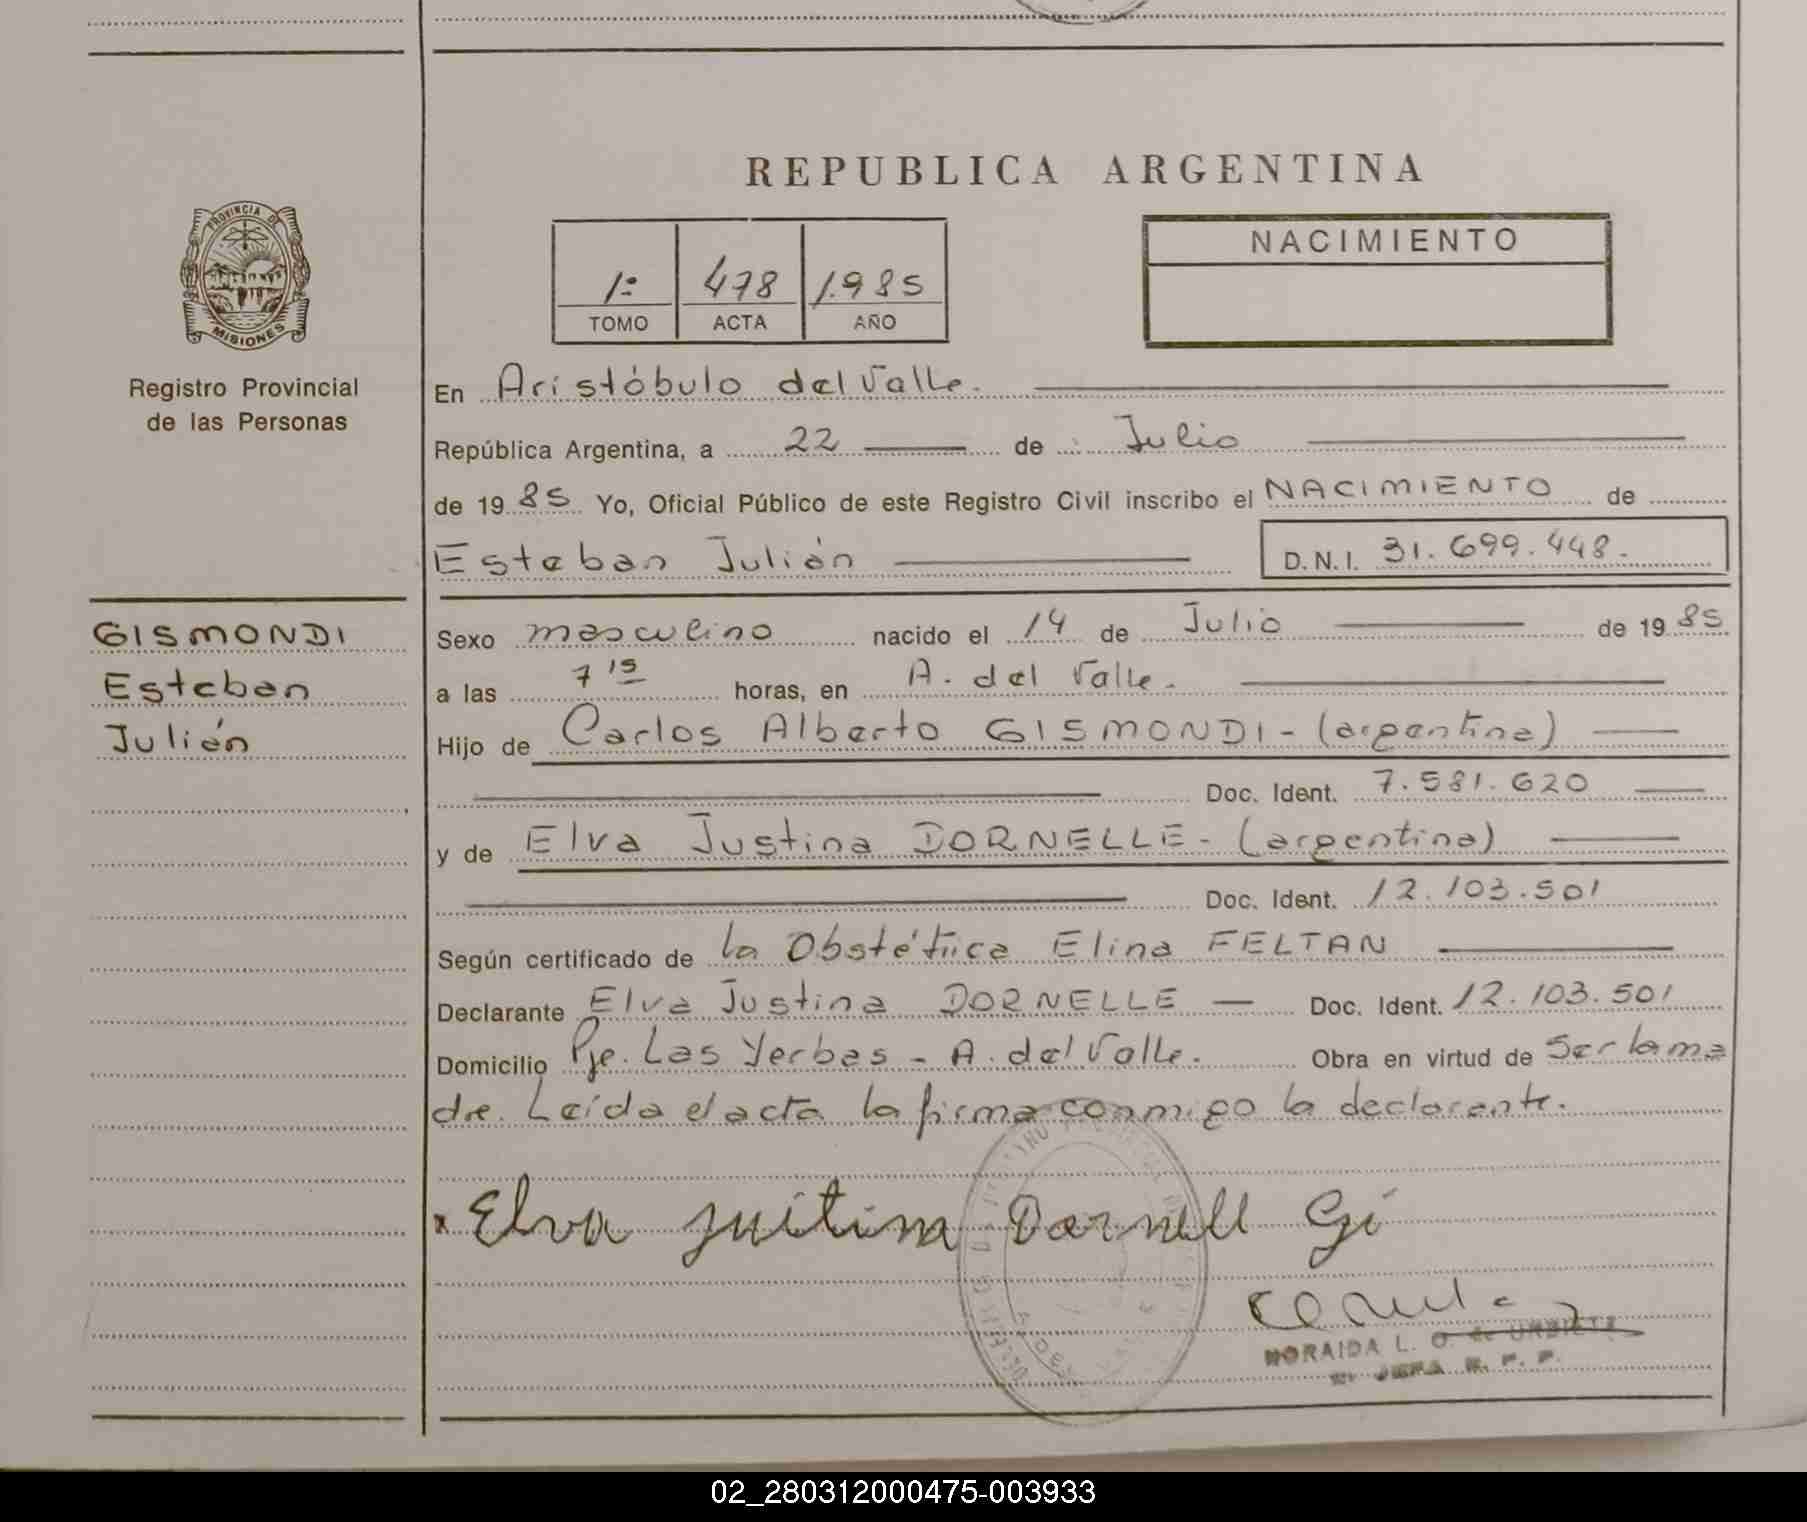 REPUBLICA ARGENTINA
PROVINCIA DE
MISIONES
Registro Provincial
de las Personas
1º 478 1.985
TOMO ACTA AÑO
NACIMIENTO
En Aristóbulo del Valle.
República Argentina, a 22 de Julio
de 19 85 Yo, Oficial Público de este Registro Civil inscribo el NACIMIENTO de
Esteban Julián D.N.I. 31.699.448.
GISMONDI
Esteban
Julián
Sexo masculino nacido el 14 de Julio de 19 85
a las 7 15 horas, en A. del Valle.
Hijo de Carlos Alberto GISMONDI - (argentina)
Doc. Ident. 7.581.620
y de Elva Justina DORNELLE - (argentina)
Doc. Ident. 12.103.501
Según certificado de la Obstétrica Elina FELTAN
Declarante Elva Justina DORNELLE Doc. Ident. 12.103.501
Domicilio Pje. Las Yerbas - A. del Valle. Obra en virtud de Ser la ma
dre. Leída el acta la firma conmigo la declarante.
Elva Justina Dornell Gi
NORAIDA L. O. de URBIETA
JEFA R. P. P.
02_280312000475-003933